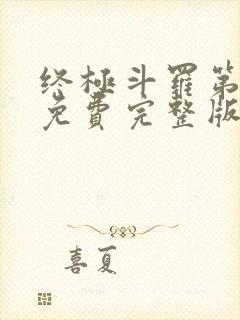 终极斗罗第
免费完整版
喜夏